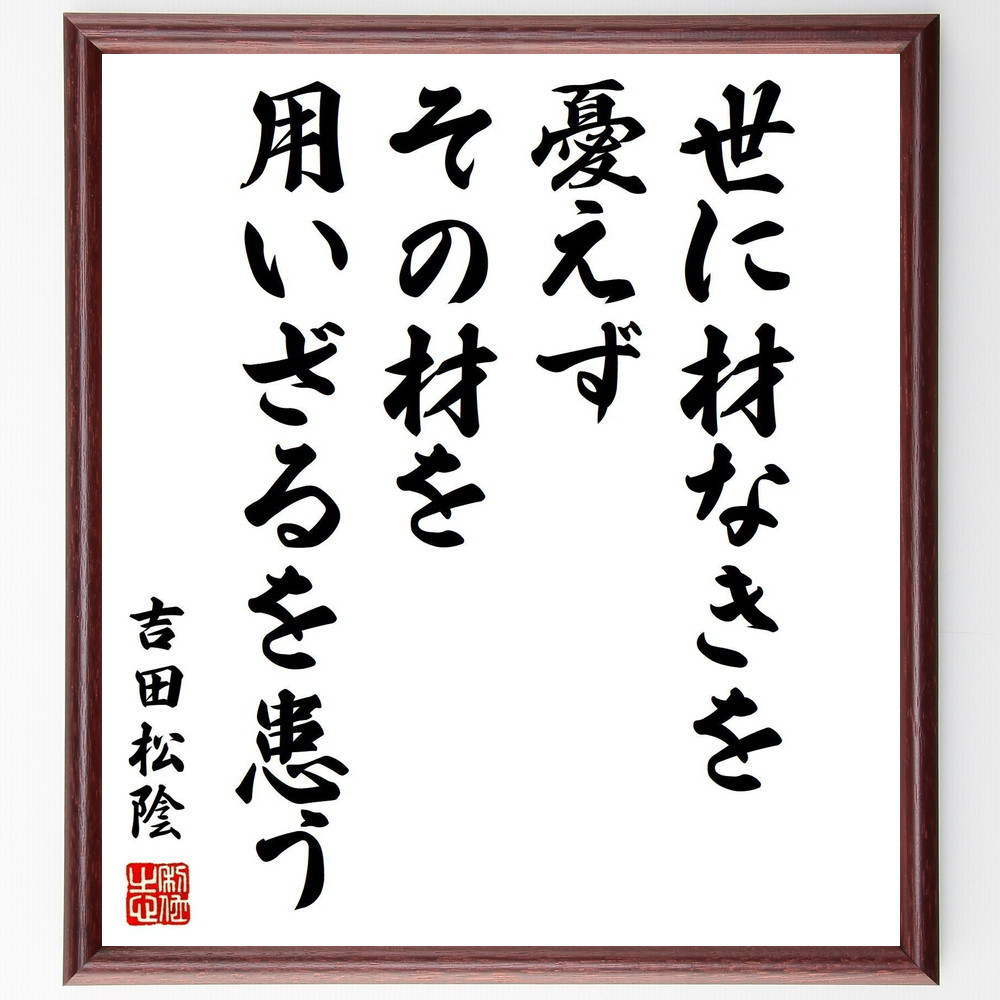 世に材なきを
憂えず
その材を
用いざるを患う
吉田松陰